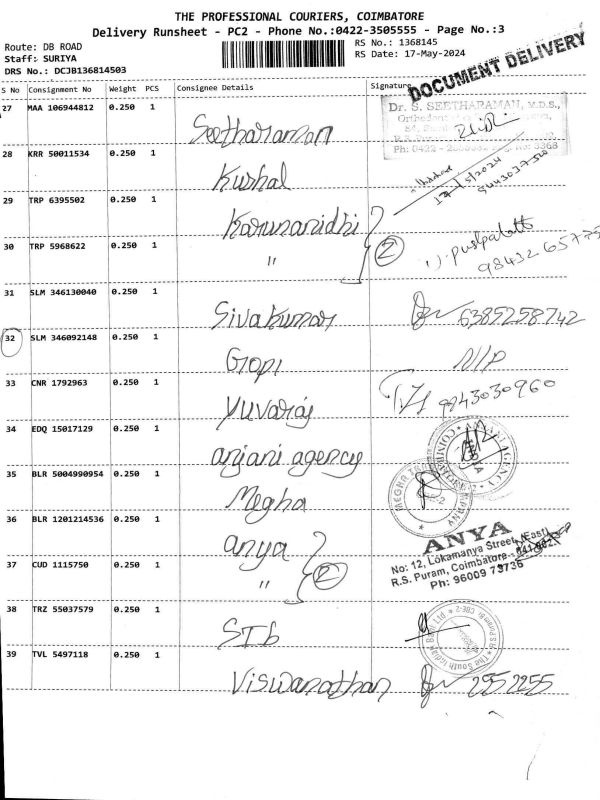 THE PROFESSIONAL COURIERS, COIMBATORE
Delivery Runsheet - PC2 - Phone No.:0422-3505555 - Page No.:3
Route: DB ROAD
Staff: SURIYA
DRS No.: DCJB136814503
RS No.: 1368145
RS Date: 17-May-2024
DOCUMENT DELIVERY
S No Consignment No Weight PCS Consignee Details Signature
27 MAA 106944812 0.250 1 Seetharaman
Dr. S. SEETHARAMAN, M.D.S.,
28 KRR 50011534 0.250 1 Kushal
17/5/2024
9443037520
29 TRP 6395502 0.250 1 Karunanidhi
30 TRP 5968622 0.250 1 "
2
98432 65775
31 SLM 346130040 0.250 1 Sivakumar
6385258742
32 SLM 346092148 0.250 1 Gopi
N/P
33 CNR 1792963 0.250 1 Yuvaraj
9843030960
34 EDQ 15017129 0.250 1 anjani agency
35 BLR 5004990954 0.250 1 Megha
36 BLR 1201214536 0.250 1 anya
37 CUD 1115750 0.250 1 "
2
ANYA
No: 12, Lokamanya Street, (East)
R.S. Puram, Coimbatore -
Ph: 96009 73736
38 TRZ 55037579 0.250 1 STb
39 TVL 5497118 0.250 1 Viswanathan
2552255